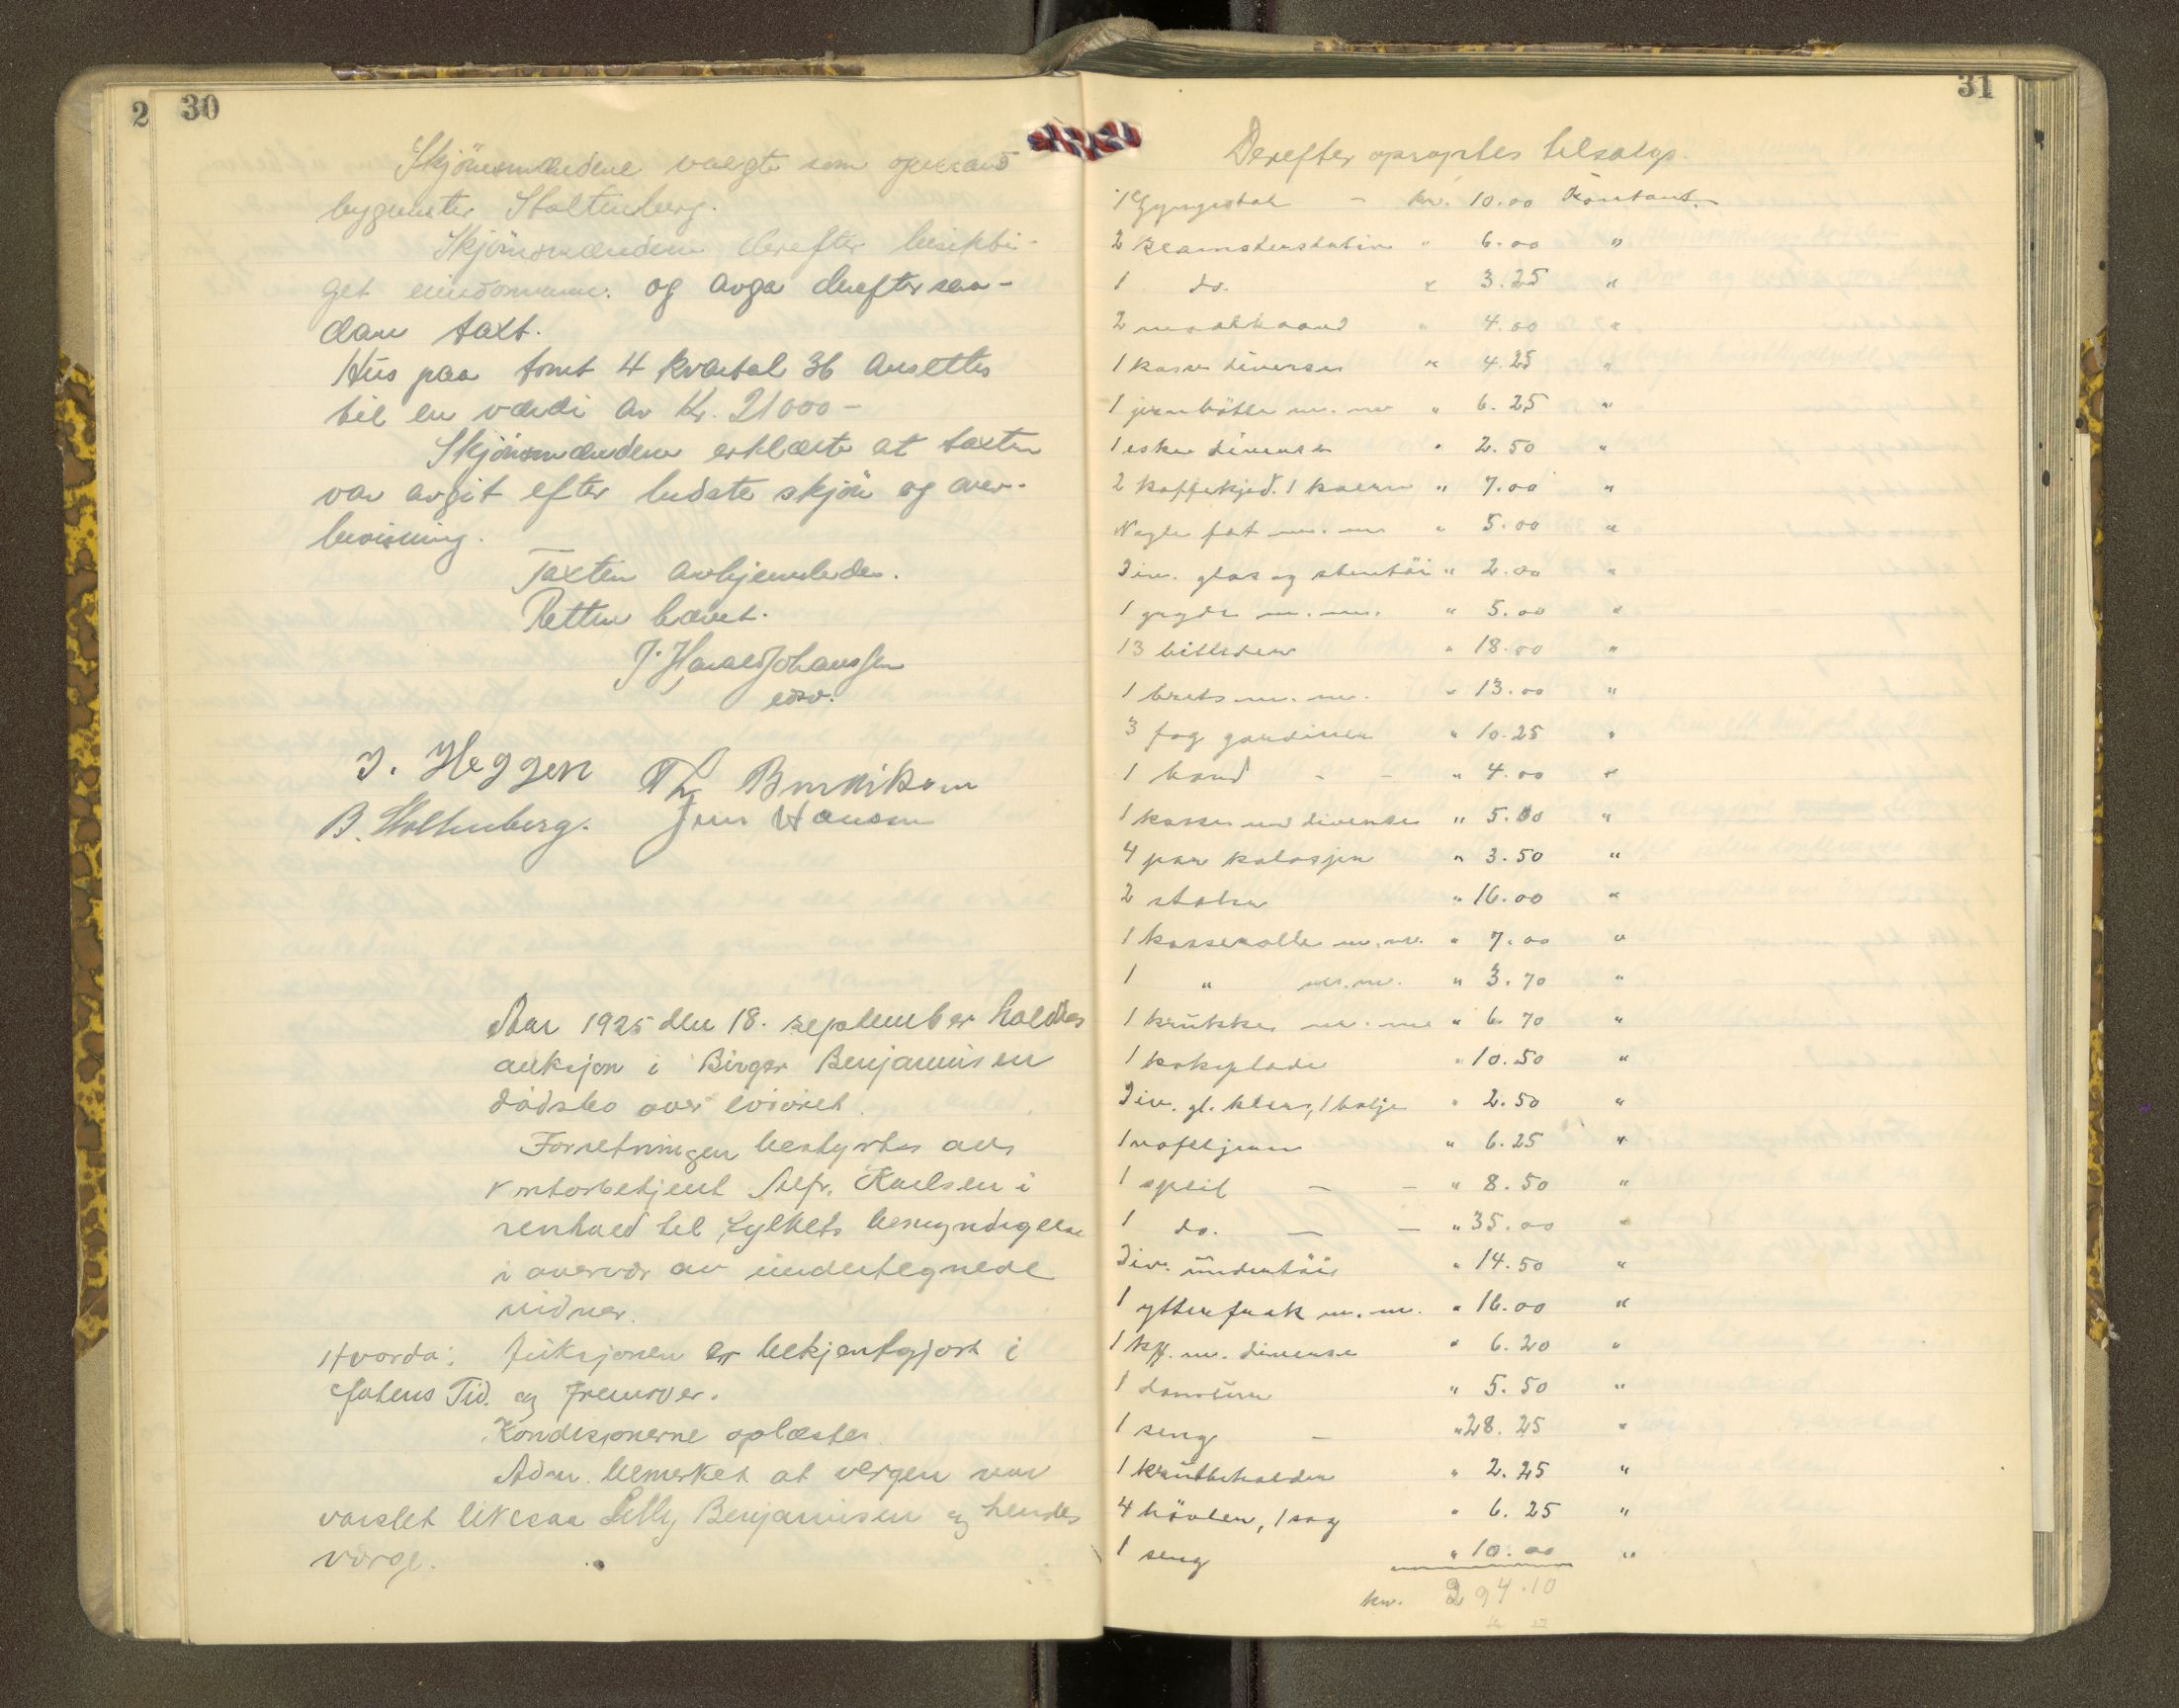 2 30
Skjönsmændene valgte som opmand
bygmester Stoltenberg.
Skjönsmændene derefter besikti-
get eiendommen. og avga derefter saa-
dan taxt.
Hus paa tomt 4 kvartal 36 ansettes
til en værdi av Kr. 21000-
Skjönsmændene erklærte at taxten
var avgit efter bedste skjön og over-
bevisning.
Taxten avhjemledes.
Retten hævet.
J. Harald Johanssen
edsv.
J. Heggen Th
B. Stoltenberg. Jens Hansen
Aar 1925 den 18. september holdtes
auksjon i Birger Benjaminsen
dödsbo over lösöret.
Forretningen bestyrtes av
kontorbetjent Alfr. Karlsen i
henhold til fylkets bemyndigelse
i overvær av undertegnede
vidner.
Hvorda: Auksjonen er bekjentgjort i
Ofotens Tid. og Fremover.
Kondisjonerne oplæstes.
Adm. bemerket at vergen var
varslet likesaa Lilly Benjaminsen og hendes
verge.
31
Derefter oproptes tilsalgs.
1 Gyngestol - kr. 10.00 Kontant.
2 blomsterstativ " 6.00 "
1 do. " 3.25 "
2 " 4.00 "
1 kasse diverse " 4.25 "
1 jernbötte m. m. " 6.25 "
1 eske diverse " 2.50 "
2 kaffekjed. 1 kvern " 7.00 "
Nogle fat m. m. " 5.00 "
Div. glas og stentöi " 2.00 "
1 gryde m. m. " 5.00 "
13 billeder " 18.00 "
1 m. m. " 13.00 "
3 fag gardiner " 10.25 "
1 bord - - " 4.00 "
1 kasse m diverse " 5.00 "
4 par kalosjer " 3.50 "
2 stoler " 16.00 "
1 kasserolle m. m. " 7.00 "
1 " m. m. " 3.70 "
1 krukke m. m. " 6.70 "
1 kokeplade " 10.50 "
Div. gl. klær, 1 balje " 2.50 "
1 vofeljern " 6.25 "
1 speil - - " 8.50 "
1 do. - - " 35.00 "
Div. undertöi " 14.50 "
1 ytterfrak m. m. " 16.00 "
1 kff. m. diverse " 6.20 "
1 dameur " 5.50 "
1 seng - " 28.25 "
1 krutbeholder " 2.25 "
4 hövler, 1 sag " 6.25 "
1 seng " 10.00 "
kr. 294.10